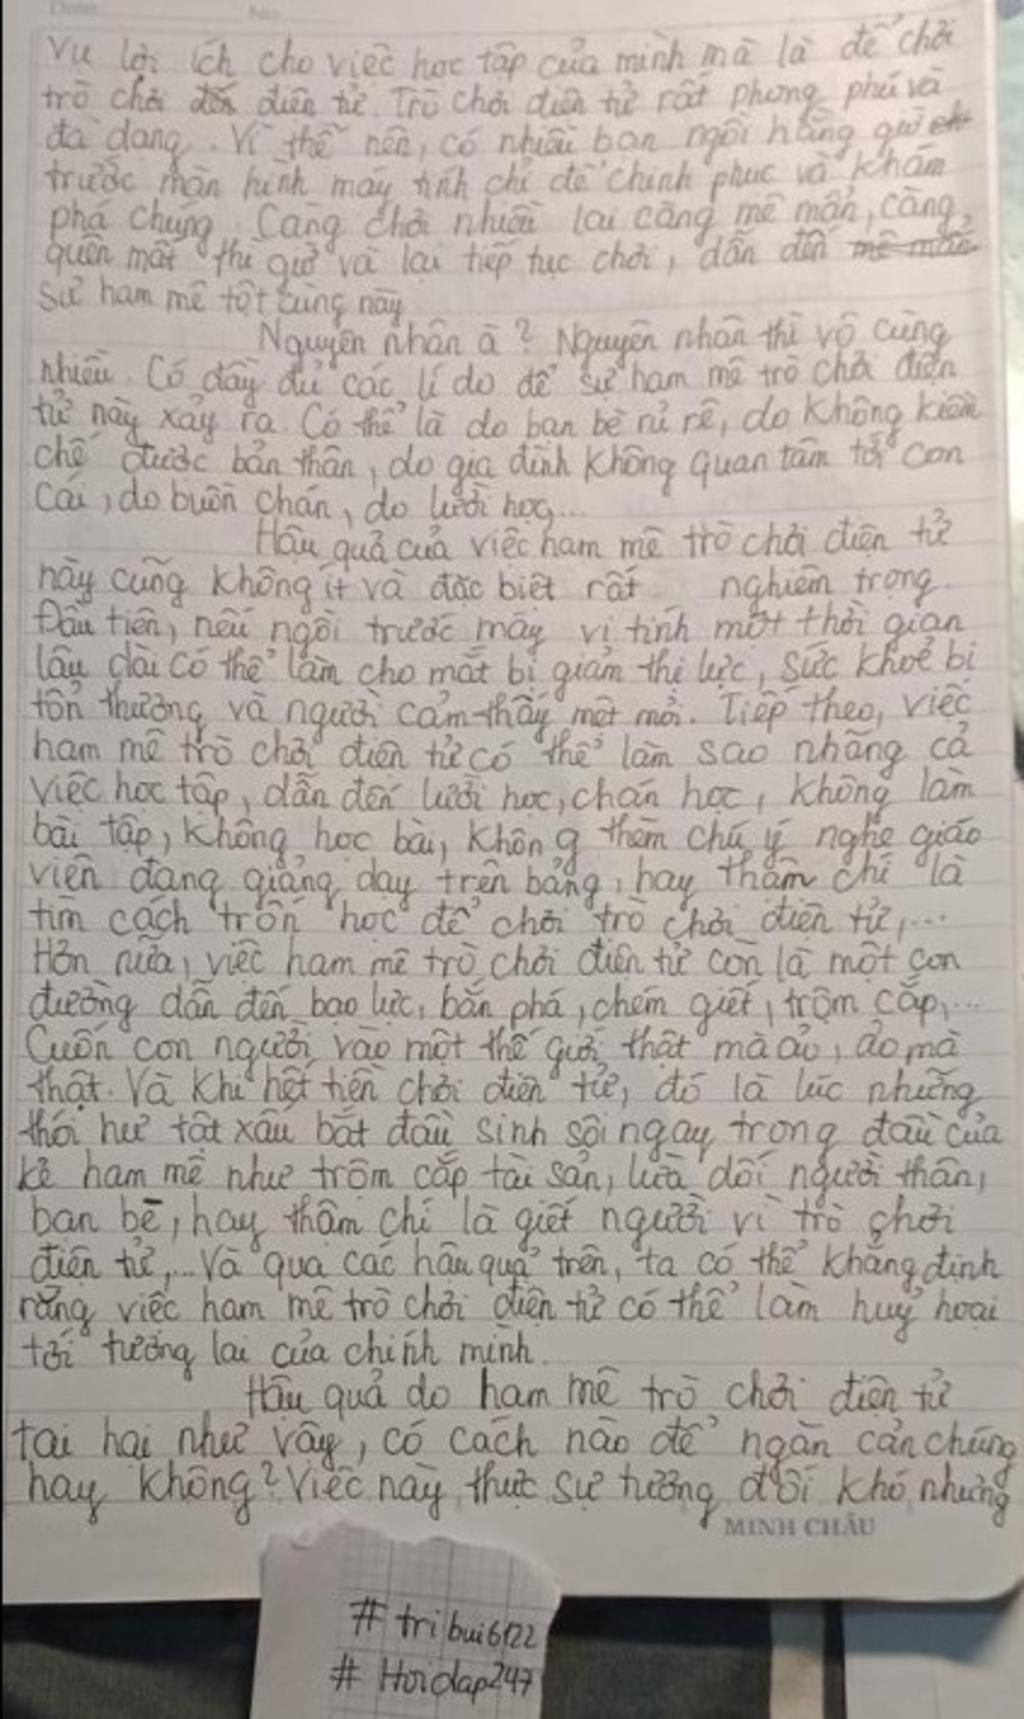 Date No
vụ lợi ích cho việc học tập của mình mà là để chơi
trò chơi điện tử. Trò chơi điện tử rất phong phú và
đa dạng. Vì thế nên, có nhiều bạn ngồi hằng giờ
trước màn hình máy tính chỉ để chinh phục và khám
phá chúng. Càng chơi nhiều lại càng mê mẩn, càng
quên mất thì giờ và lại tiếp tục chơi, dẫn đến mê mẩn
sự ham mê tột cùng này.
Nguyên nhân à? Nguyên nhân thì vô cùng
nhiều. Có đầy đủ các lí do để sự ham mê trò chơi điện
tử này xảy ra. Có thể là do bạn bè rủ rê, do không kiềm
chế được bản thân, do gia đình không quan tâm tới con
cái, do buồn chán, do lười học,...
Hậu quả của việc ham mê trò chơi điện tử
này cũng không ít và đặc biệt rất nghiêm trọng.
Đầu tiên, nếu ngồi trước máy vi tính một thời gian
lâu dài có thể làm cho mắt bị giảm thị lực, sức khoẻ bị
tổn thương và người cảm thấy mệt mỏi. Tiếp theo, việc
ham mê trò chơi điện tử có thể làm sao nhãng cả
việc học tập, dẫn đến lười học, chán học, không làm
bài tập, không học bài, không thèm chú ý nghe giáo
viên đang giảng dạy trên bảng, hay thậm chí là
tìm cách trốn học để chơi trò chơi điện tử,...
Hơn nữa, việc ham mê trò chơi điện tử còn là một con
đường dẫn đến bạo lực, bắn phá, chém giết, trộm cắp,...
Cuốn con người vào một thế giới thật mà ảo, ảo mà
thật. Và khi hết tiền chơi điện tử, đó là lúc những
thói hư tật xấu bắt đầu sinh sôi ngay trong đầu của
kẻ ham mê như trộm cắp tài sản, lừa dối người thân,
bạn bè, hay thậm chí là giết người vì trò chơi
điện tử,... Và qua các hậu quả trên, ta có thể khẳng định
rằng việc ham mê trò chơi điện tử có thể làm huỷ hoại
tới tương lai của chính mình.
Hậu quả do ham mê trò chơi điện tử
tai hại như vậy, có cách nào để ngăn cản chúng
hay không? Việc này thực sự tương đối khó nhưng
MINH CHÂU
# tribui6122
# Hoidap247